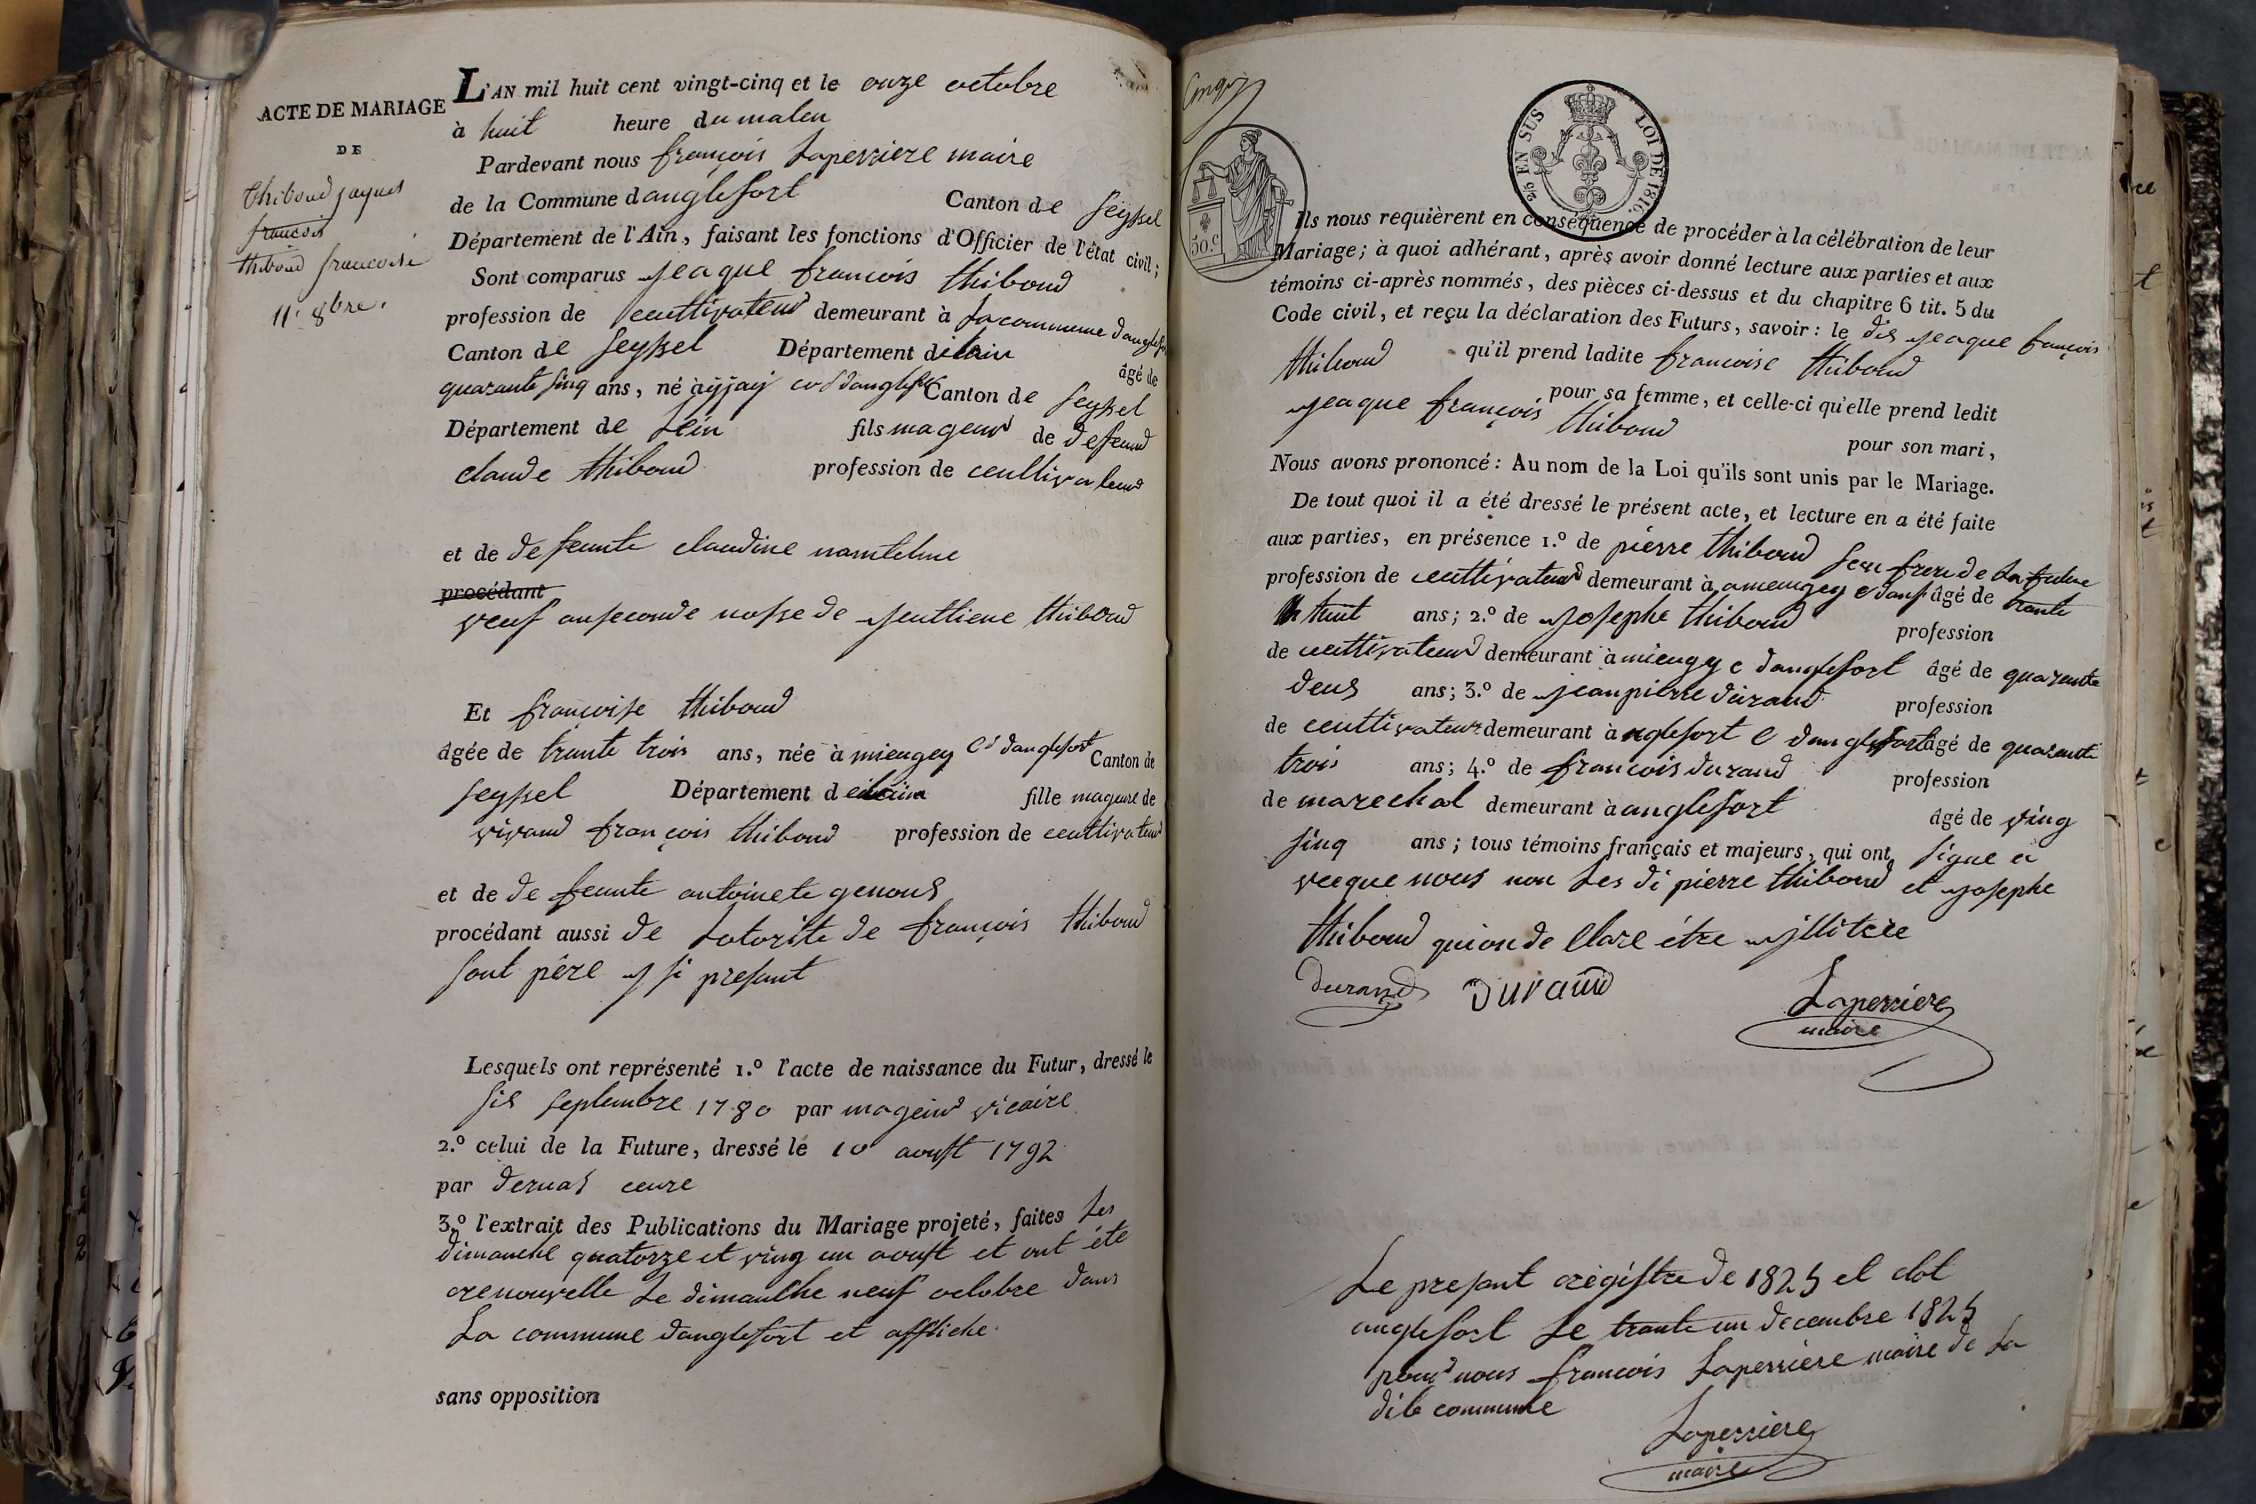 ACTE DE MARIAGE
DE
Thiboud jaques
francois
thiboud francoise
11. 8bre.
L'AN mil huit cent vingt-cinq et le onze octobre
à huit heure du maten
Pardevant nous françois Laperriere maire
de la Commune danglefort Canton de Seyssel
Département de l'Ain, faisant les fonctions d'Officier de l'état civil;
Sont comparus jeaque francois thiboud
profession de ceultivateur demeurant à La commune danglefort
Canton de Seyssel Département de lain âgé de
quarante sinq ans, né à danglefort Canton de Seyssel
Département de Lein fils mageur de defeund
claude thiboud profession de ceultivateur
et de defeunte claudine
procédant
veuf anseconde nosse de thiboud
Et françoise thiboud
âgée de trante trois ans, née à miengey cd danglefort Canton de
Seyssel Département de lain fille mageure de
vivand françois thiboud profession de ceultivateur
et de de feunte antoinete genoud
procédant aussi de Lotorite de françois thiboud
sont père y si presant
Lesquels ont représenté 1.º l'acte de naissance du Futur, dressé le
sis septembre 1780 par vicaire
2.º celui de la Future, dressé le 10 aoust 1792
par ceure
3.º l'extrait des Publications du Mariage projeté, faites Les
dimanche quatorze et ving un aoust et ont été
renouvelle Le dimanche neuf octobre dans
La commune danglefort et affliche
sans opposition
2/5 EN SUS LOI DE 1816.
50.C
Ils nous requièrent en conséquence de procéder à la célébration de leur
Mariage; à quoi adhérant, après avoir donné lecture aux parties et aux
témoins ci-après nommés, des pièces ci-dessus et du chapitre 6 tit. 5 du
Code civil, et reçu la déclaration des Futurs, savoir: le dis jeaque françois
thiboud qu'il prend ladite francoise thiboud
pour sa femme, et celle-ci qu'elle prend ledit
jeaque françois thiboud pour son mari,
Nous avons prononcé: Au nom de la Loi qu'ils sont unis par le Mariage.
De tout quoi il a été dressé le présent acte, et lecture en a été faite
aux parties, en présence 1.º de pierre thiboud frere de La future
profession de ceultivateur demeurant à ameugey âgé de trante
huit ans; 2.º de josephe thiboud profession
de ceultivateur demeurant à miengy c danglefort âgé de quarente
deus ans; 3.º de jeanpierre durand profession
de ceultivateur demeurant à nglefort c danglefort âgé de quarente
trois ans; 4.º de francois durand profession
de marechal demeurant à anglefort âgé de ving
sinq ans; tous témoins français et majeurs, qui ont signe a
vecque nous non Les di pierre thiboud et josephe
thiboud quionde Clare étre jllitere
durand Durand Laperriere
maire
Le presant régistre de 1825 et clot
anglefort Le trante un decembre 1825
pour nous francois Laperriere maire de La
dite commune
Laperriere
maire